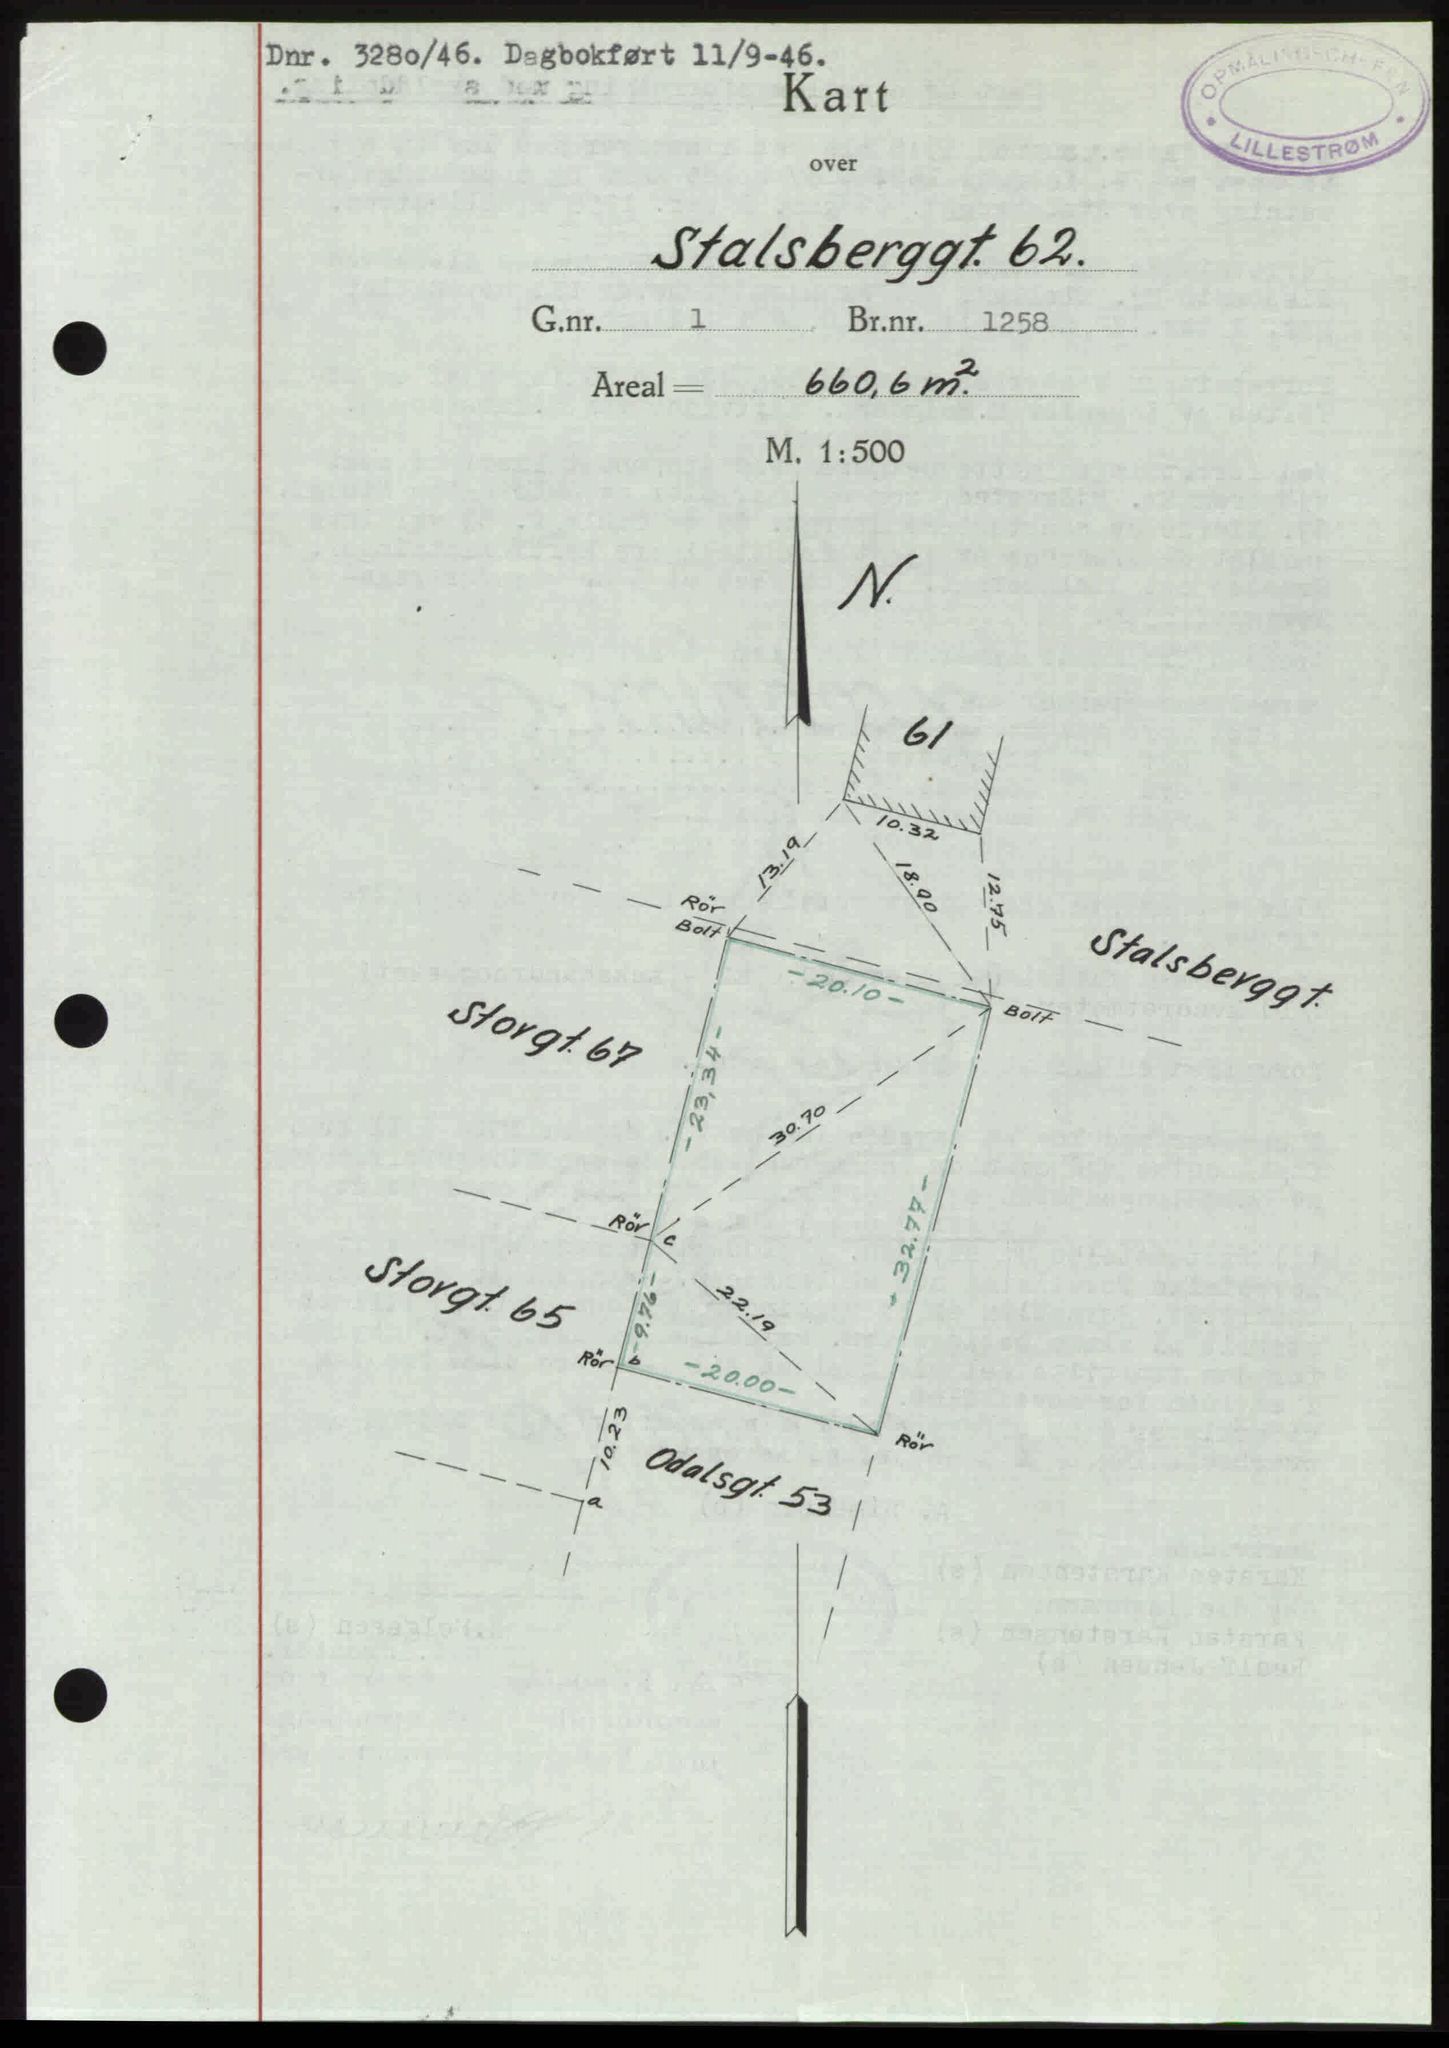 Dnr. 3280/46. Dagbokført 11/9-46.
OPMÅLINGSCHEFEN
LILLESTRØM
Kart
over
Stalsberggt. 62.
G.nr. 1 Br.nr. 1258
Areal = 660,6 m².
M. 1:500
N.
61
10.32
13.19
18.90
12.75
Rör
Bolt
Stalsberggt.
-20.10-
Bolt
Storgt. 67
-23,34-
30.70
Rör
c
-32.77-
Storgt. 65
-9.76-
22.19
Rör
b
-20.00-
Rör
10.23
Odalsgt. 53
a